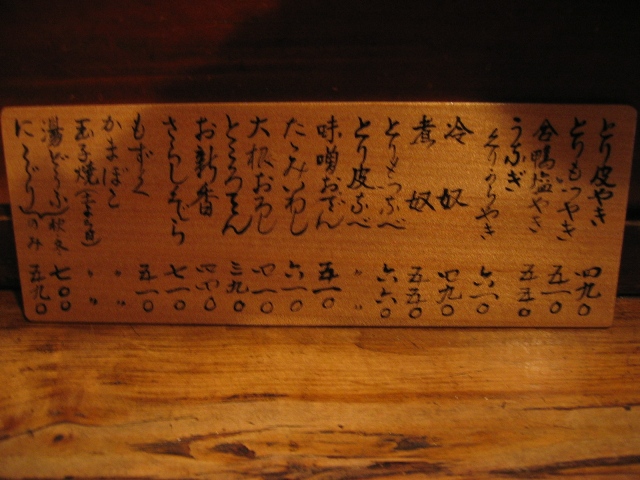 とり皮やき 四九〇
とりもつやき 五一〇
合鴨塩やき 五五〇
うなぎ
くりからやき 六一〇
冷奴 四九〇
煮奴 五五〇
とりもつなべ 六六〇
とり皮なべ 〃
味噌おでん 五一〇
たたみいわし 六一〇
大根おろし 四一〇
ところてん 三九〇
お新香 四四〇
さらしくじら 七一〇
もずく 五一〇
かまぼこ 〃
玉子焼 〃
湯どうふ 秋冬 七〇〇
にこごり のみ 五九〇